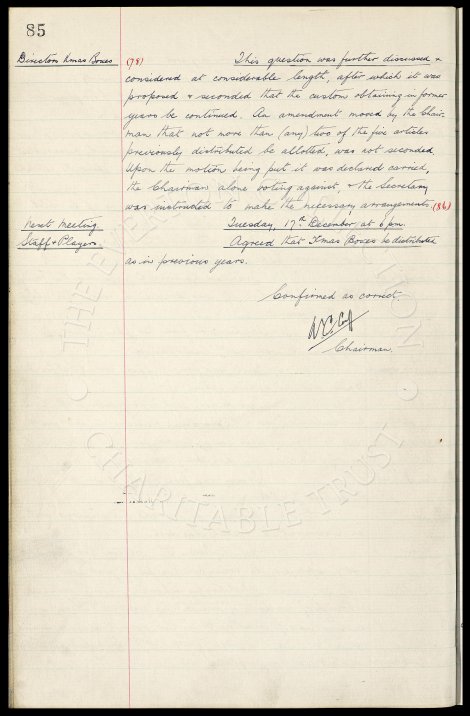 85
Directors Xmas Boxes (78) This question was further discussed &
considered at considerable length, after which it was
proposed & seconded that the custom obtaining in former
years be continued. An amendment moved by the Chair-
man that not more than (any) two of the five articles
previously distributed be allotted, was not seconded.
Upon the motion being put it was declared carried,
the Chairman alone voting against, & the Secretary
was instructed to make the necessary arrangements. (86)
Next Meeting. Tuesday, 17th December at 6 pm.
Staff & Players. Agreed that Xmas Boxes be distributed
as in previous years.
Confirmed as correct.
Chairman.
CHARITABLE TRUST